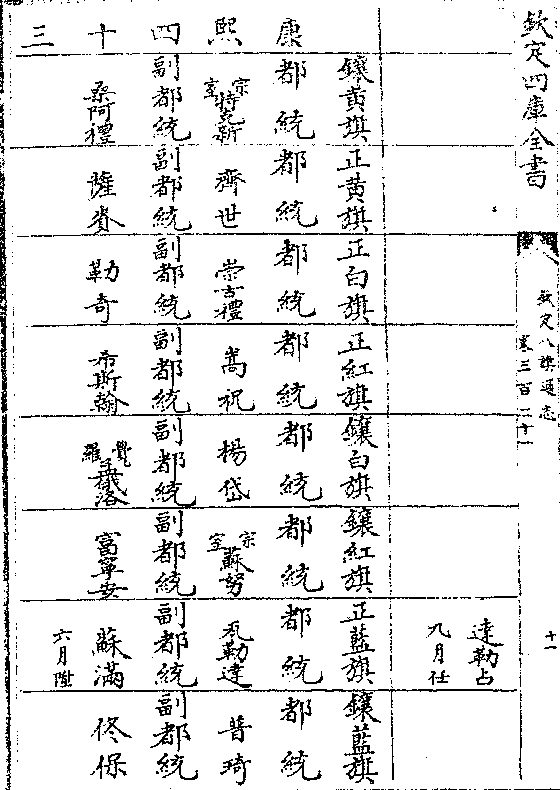 欽定四庫全書
欽定八旗通志
卷三百二十一
十一
達勒占
九月任
康熙四十三
鑲黃旗
都統
宗室特克新
副都統
桑阿禮
正黃旗
都統
齊世
副都統
薩賚
正白旗
都統
崇古禮
副都統
勒奇
正紅旗
都統
嵩祝
副都統
希斯翰
鑲白旗
都統
楊岱
副都統
覺羅孟洛
鑲紅旗
都統
宗室蘇努
副都統
富寧安
正藍旗
都統
瓦勒達
副都統
蘇滿
六月陞
鑲藍旗
都統
普琦
副都統
佟保